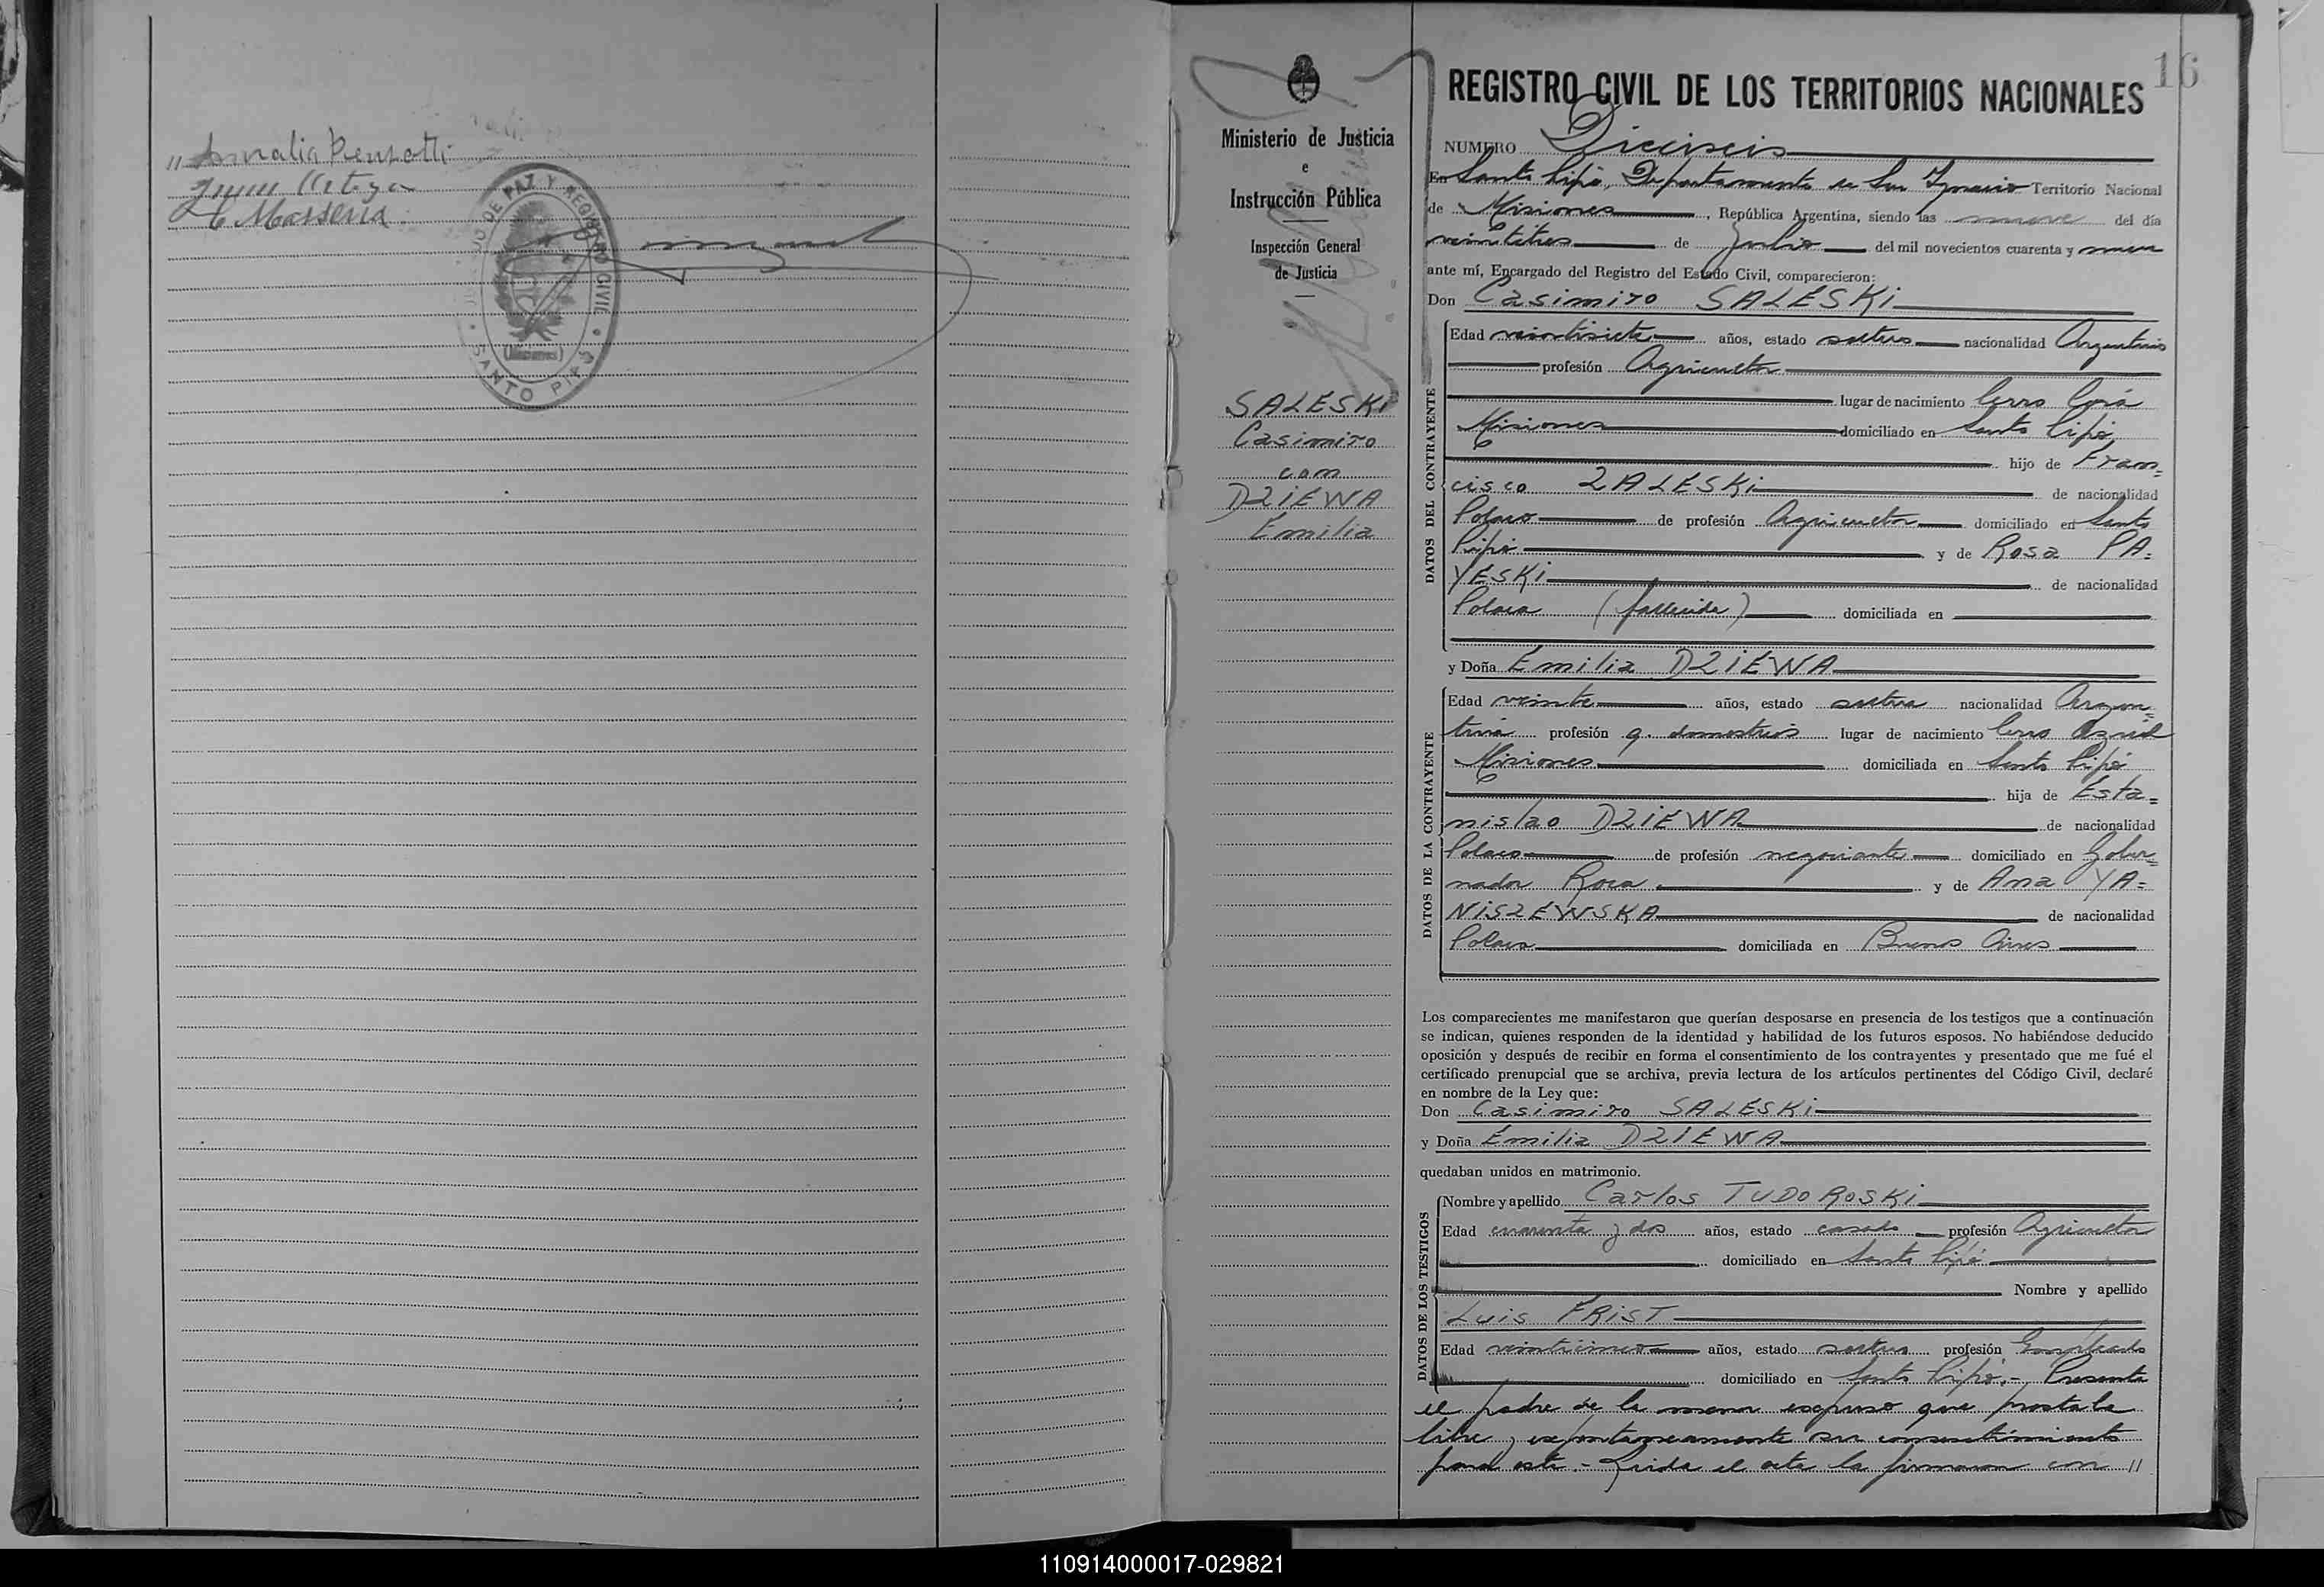 "Amalia
H Massena
JUZGADO DE PAZ Y REGISTRO CIVIL
(Misiones)
SANTO PIPÓ
Ministerio de Justicia
e
Instrucción Pública
Inspección General
de Justicia
SALESKi
Casimiro
con
DZiEWA
Emilia
16
REGISTRO CIVIL DE LOS TERRITORIOS NACIONALES
NUMERO Dieciseis
En Santo Pipó, Departamento de San Ignacio Territorio Nacional
de Misiones, República Argentina, siendo las nueve del día
veintitres de Julio del mil novecientos cuarenta y nueve
ante mí, Encargado del Registro del Estado Civil, comparecieron:
Don Casimiro SALESKi
DATOS DEL CONTRAYENTE
Edad veintisiete años, estado soltero nacionalidad Argentino
profesión Agricultor
lugar de nacimiento Cerro Corá
Misiones domiciliado en Santo Pipó,
hijo de Fran=
cisco ZALESKi de nacionalidad
Polaco de profesión Agricultor domiciliado en Santo
Pipó y de Rosa PA=
YESKi de nacionalidad
Polaca (fallecida) domiciliada en
y Doña Emilia DZiEWA
DATOS DE LA CONTRAYENTE
Edad veinte años, estado soltera nacionalidad Argen=
tina profesión q. domesticos lugar de nacimiento Cerro Azul
Misiones domiciliada en Santo Pipó
hija de Esta=
nislao DZiEWA de nacionalidad
Polaco de profesión negociante domiciliado en Gober=
nador Roca y de Ana YA=
NiSZEWSKA de nacionalidad
Polaca domiciliada en Buenos Aires
Los comparecientes me manifestaron que querían desposarse en presencia de los testigos que a continuación
se indican, quienes responden de la identidad y habilidad de los futuros esposos. No habiéndose deducido
oposición y después de recibir en forma el consentimiento de los contrayentes y presentado que me fué el
certificado prenupcial que se archiva, previa lectura de los artículos pertinentes del Código Civil, declaré
en nombre de la Ley que:
Don Casimiro SALESKi
y Doña Emilia DZIEWA
quedaban unidos en matrimonio.
DATOS DE LOS TESTIGOS
Nombre y apellido Carlos TUDOROSKi
Edad cuarenta y dos años, estado casado profesión Agricultor
domiciliado en Santo Pipó
Nombre y apellido
Luis FRiST
Edad veinticinco años, estado soltero profesión Empleado
domiciliado en Santo Pipó.- Presente
el padre de la menor expuso que prestaba
libre y expontaneamente su consentimiento
para este.- Leida el acta la firmaron con "
110914000017-029821